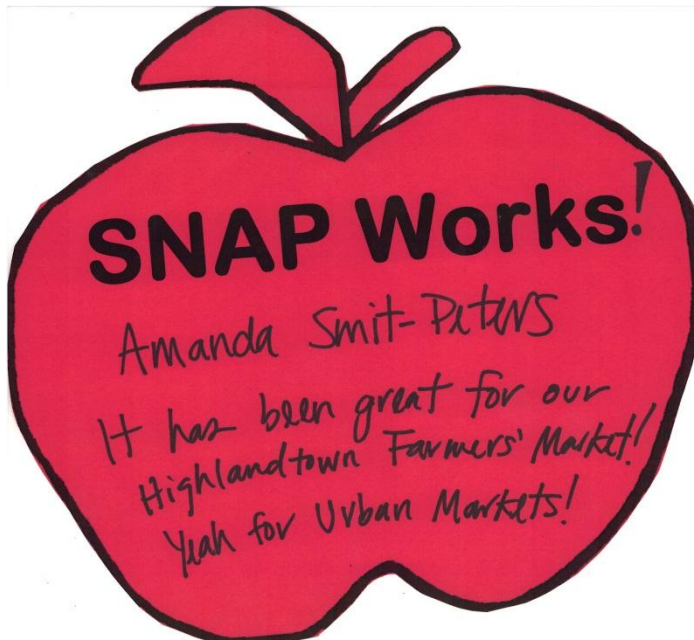 SNAP Works!
Amanda Smit-Peters
It has been great for our
Highlandtown Farmers' Market!
Yeah for Urban Markets!